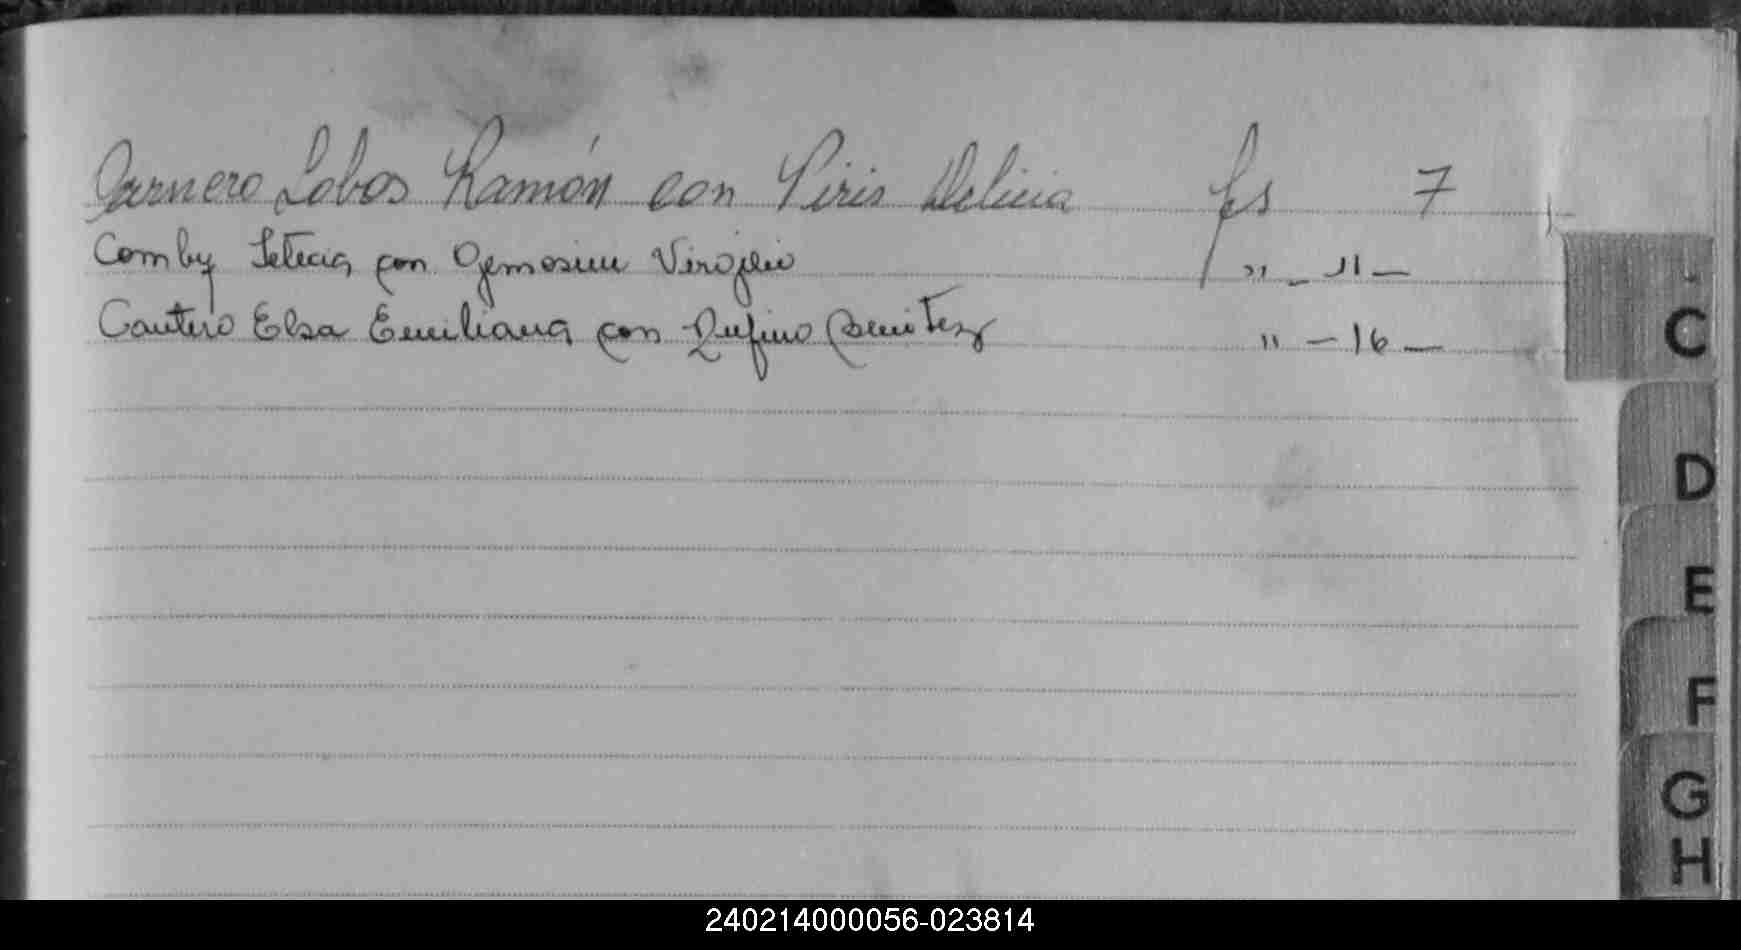 Carnero Lobos Ramón con Piris Delicia fs 7
Comby Leticia con Gemosiu Virgilio " - 11 -
Cantero Elsa Emiliana con Rufino Benitez " - 16 -
C
D
E
F
G
H
240214000056-023814